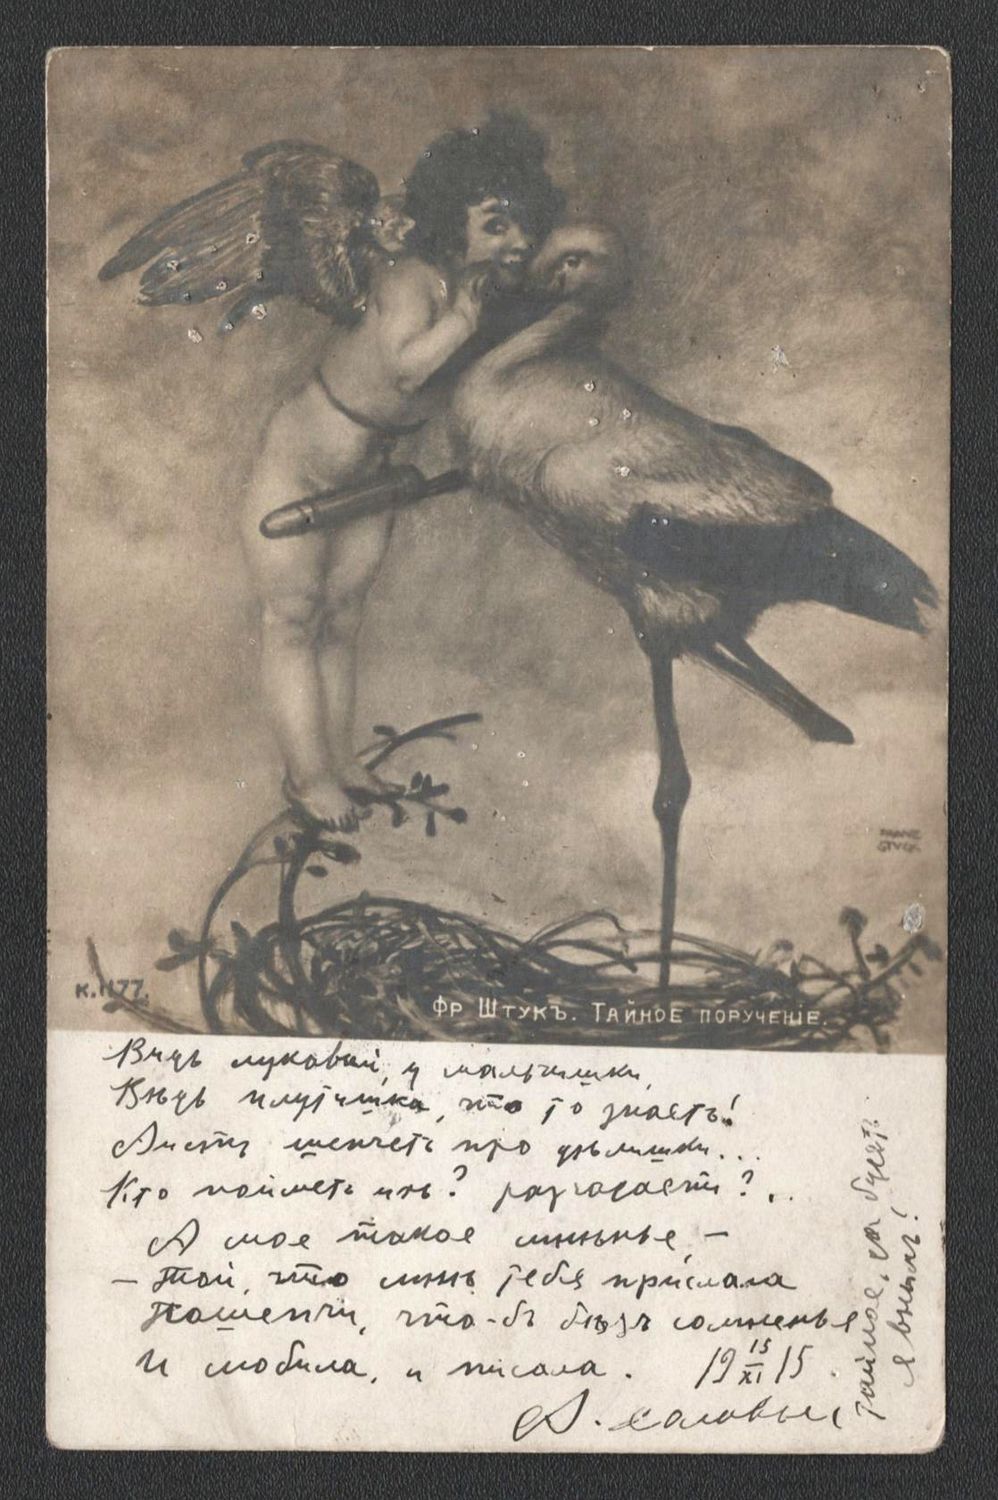 FRANZ
STVCK
К. 1177.
Фр Штукъ. Тайное порученіе.
Видъ лукавый, у мальчишки,
Видь плутишка, что то знаетъ!
Аистъ шепчетъ про дѣлишки...
Кто пойметъ ихъ? разгадаетъ?...
А мое такое мнѣнье, -
- Той, что мнѣ тебя прислала
Пошепчи, что-бъ безъ сомненья
И любила, и писала. 19 15/XI 15.
А.
тайное, да будетъ
явнымъ!